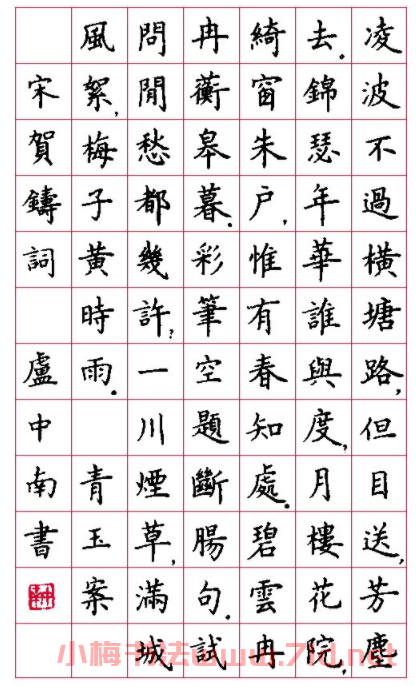 凌波不過橫塘路,但目送,芳塵
去.錦瑟年華誰與度,月樓花院,
綺窗朱户,惟有春知處.碧雲冉
冉蘅皋暮.彩筆空題斷腸句.試
問閒愁都幾許?一川煙草,滿城
風絮,梅子黃時雨. 青玉案
宋賀鑄詞 盧中南書
小梅书法